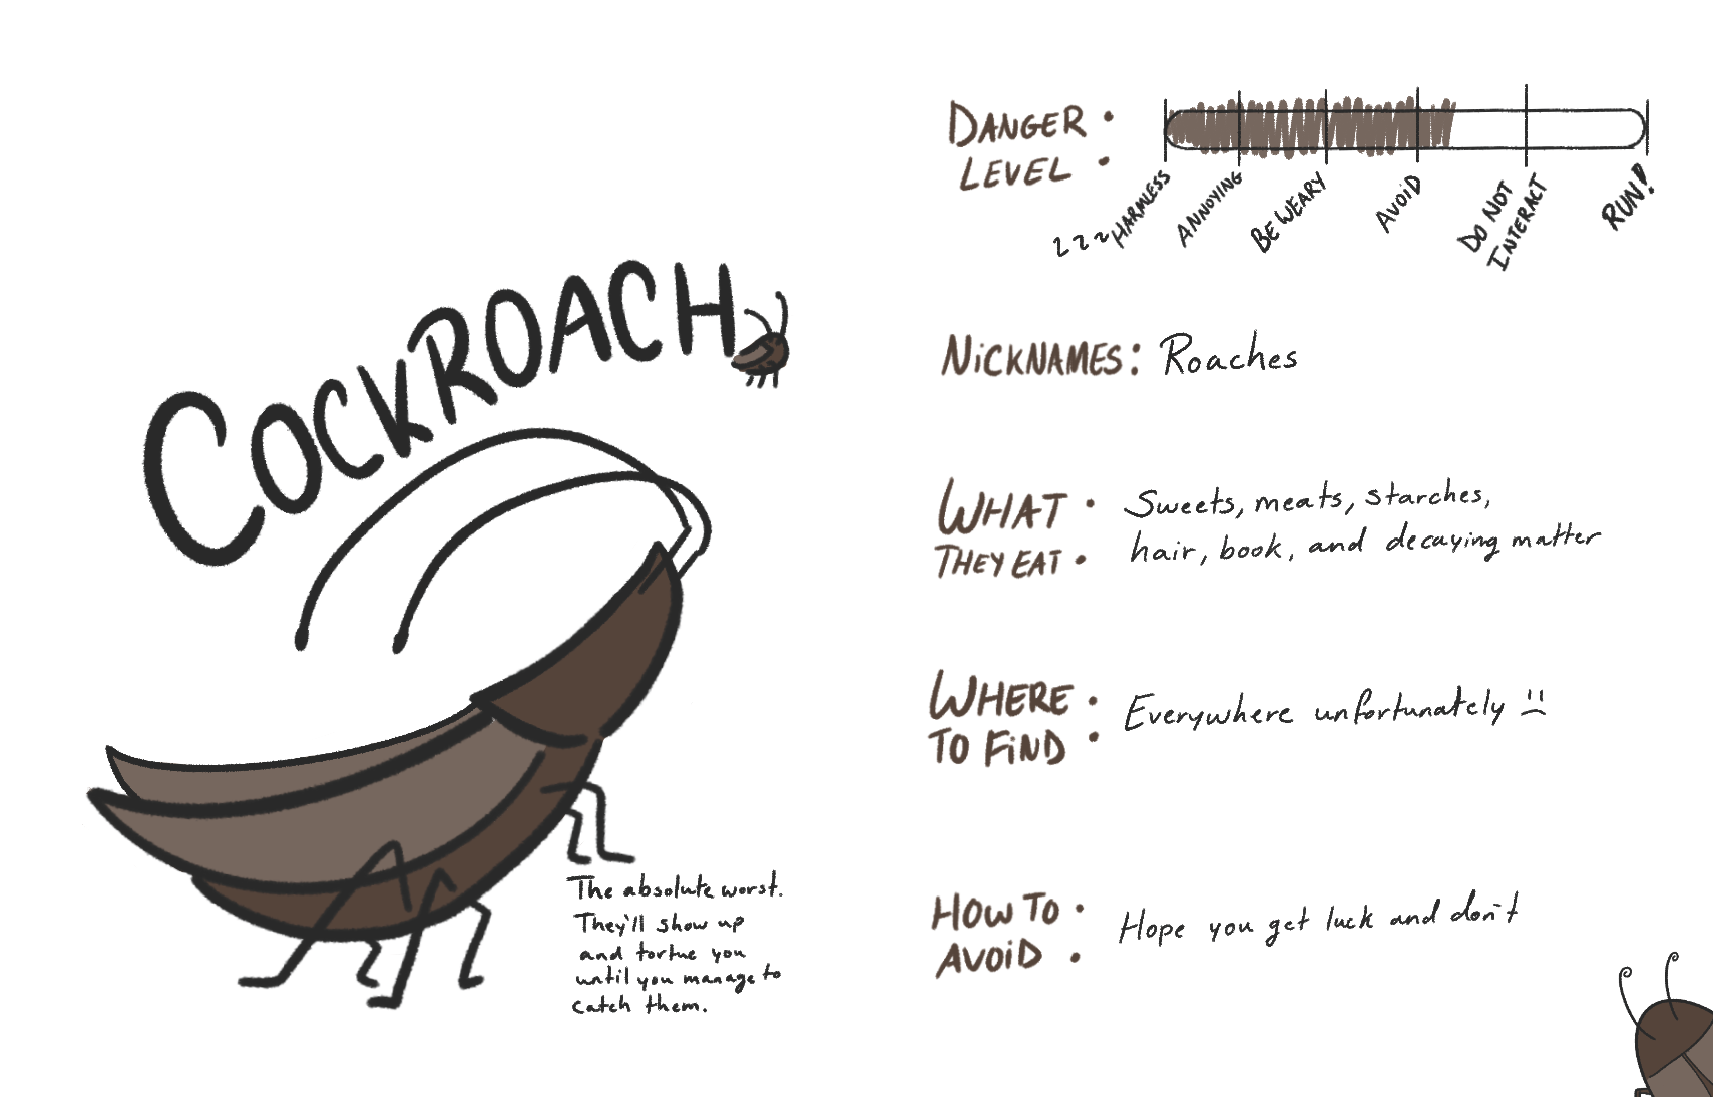 COCKROACH
The absolute worst.
They'll show up
and tortue you
until you manage to
catch them.
DANGER
LEVEL :
zzz HARMLESS
ANNOYING
BE WEARY
AVOID
DO NOT
INTERACT
RUN!
NICKNAMES: Roaches
WHAT
THEY EAT : Sweets, meats, starches,
hair, book, and decaying matter
WHERE
TO FIND : Everywhere unfortunately :(
HOW TO
AVOID : Hope you get luck and don't